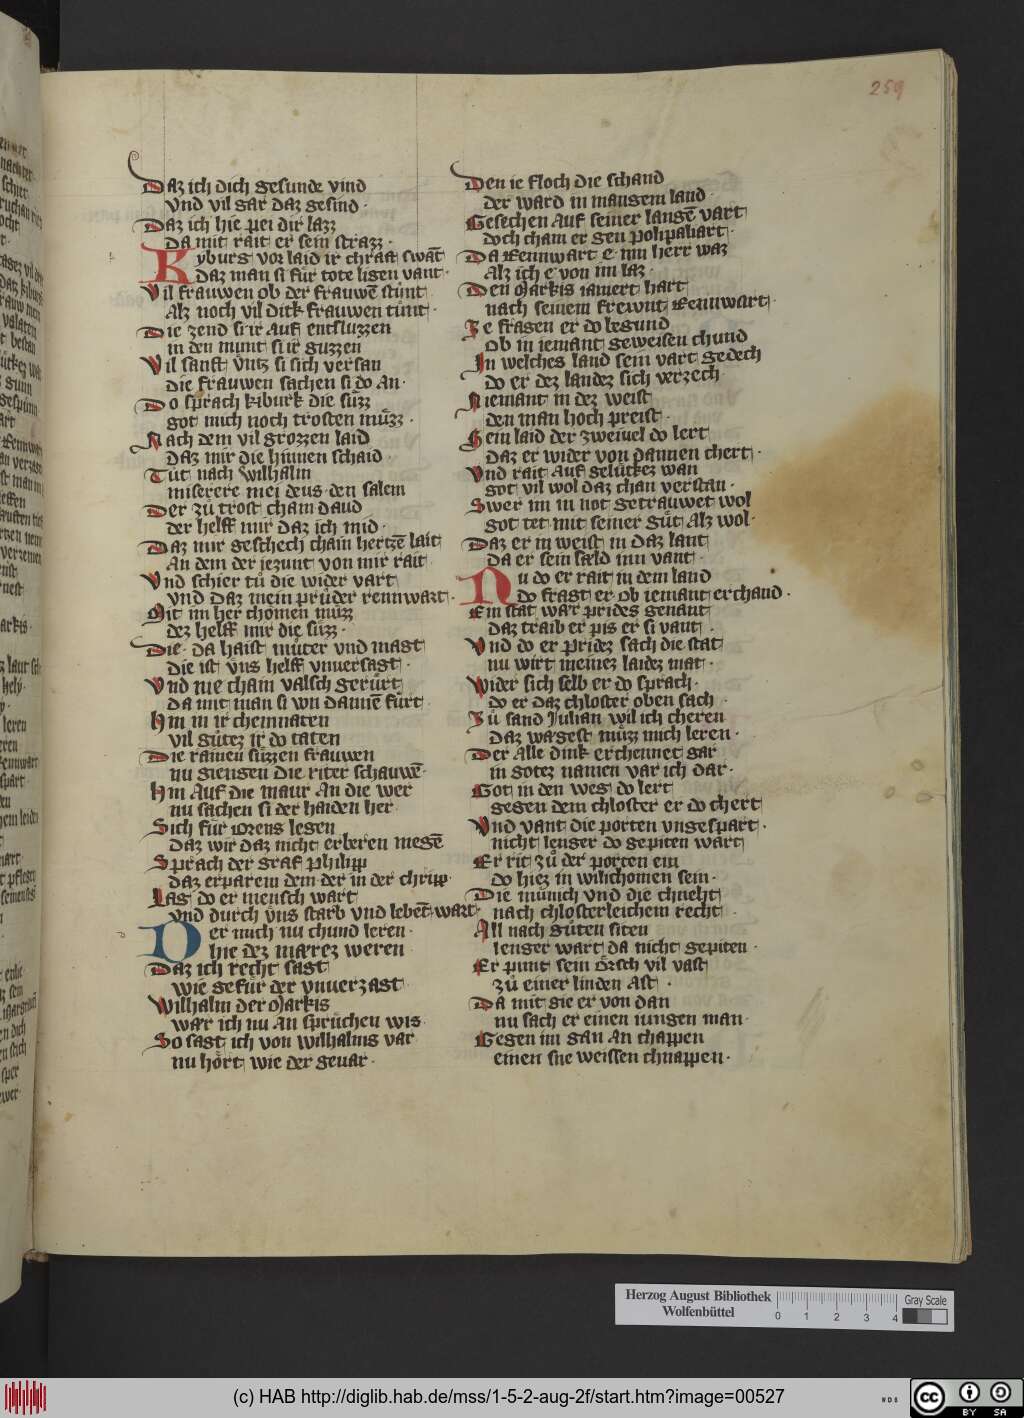 259
Daz ich dich gesunde vind
vnd vil gar daz gesind ·
Daz ich hie pei dir lazz
da mit rait er sein strazz ·
Kyburg vor laid ir chraft swāt
daz man si für tote ligen vant ·
Vil frauwen ob der frauwē stůnt
Alz noch vil dick frauwen tůnt ·
Die zend si ir Auf entsluzzen
in den munt si ir guzzen
Vil sanft vntz si sich versan
die frauwen sachen si do An ·
Do sprach kiburk die sůzz
got mich noch trosten můzz ·
Nach dem vil grozzen laid
daz mir die hinnen schaid ·
Tůt nach Wilhalm
miserere mei deus · den salem
Der zů trost cham dauid
der helff mir daz ich mid ·
Daz mir geschech chain hertzē lait
An dem der jezunt von mir rait
Vnd schier tů die wider vart
vnd daz mein průder rennwart ·
Mit im her chomen můzz
dez helff mir die sůzz ·
Die · da haist můter vnd magt
die ist vns helff vnuersagt ·
Vnd nie chain valsch gerůrt
da mit man si vn dannē fůrt ·
Hin in ir chemnaten
vil gůtez ir do taten
Die rainen sůzzen frauwen
nu giengen die riter schauwē ·
Hin Auf die maur An die wer
nu sachen si der haiden her ·
Sich für orens legen
daz wir daz nicht erberen megē
Sprach der graf philipp
daz erparem dem · der in der chripp ·
Lag do er mensch wart
vnd durch vns starb vnd lebēt wart ·
Der mich nu chund leren ·
hie dez mærez weren
Daz ich recht sagt
wie gefůr der vnuerzagt ·
Wilhalm der Markis
wær ich nu An sprůchen wis ·
So sagt ich von wilhalms var
nu hört wie der geuar ·
Den ie floch die schand
der ward in mangem land ·
Gesechen Auf seiner langē vart
doch cham er gen polipaliart ·
Da Rennwart e · im herr waz
Alz ich e von im laz ·
Den Markis iamert hart
nach seinem frewnt Rennwart ·
Ze fragen er do begund
ob in iemant geweisen chund
In welches land sein vart gedech
do er dez landez sich verzech ·
Niemant in dez weist
den man hoch preist ·
Sein laid der zweiuel do lert
daz er wider von dannen chert ·
Vnd rait Auf gelůckez wan
got vil wol daz chan verstan ·
Swer im in not getrauwet wol
got tet mit seiner gůt Alz wol ·
Daz er in weist in daz lant
da er sein sæld inn vant ·
Nu do er rait in dem land
do fragt er ob iemant erchand ·
Ein stat war prides genant
daz traib er pis er si vant ·
Vnd do er pridez sach die stat
nu wirt meinez laidez mat ·
Wider sich selb er do sprach ·
do er daz chloster oben sach ·
Zů sand Julian wil ich cheren
daz wagest můzz mich leren ·
Der Alle dink erchennet gar
in gotez namen var ich dar ·
Got in den weg do lert
gegen dem chloster er do chert
Vnd vant die porten vngespart ·
nicht lenger do gepiten wart
Er rit zů der porten ein
do hiez in wilichomen sein ·
Die můnich vnd die chneht
nach chlosterleichem recht
All nach gůten siten
lenger wart da nicht gepiten ·
Er punt sein örsch vil vast
zů einer linden Ast ·
Da mit gie er von dan
nu sach er einen iungen man ·
Gegen im gan An chappen
einen sne weissen chnappen ·
Herzog August Bibliothek
Wolfenbüttel
0 1 2 3 4
Gray Scale
(c) HAB http://diglib.hab.de/mss/1-5-2-aug-2f/start.htm?image=00527
WDB
cc BY SA